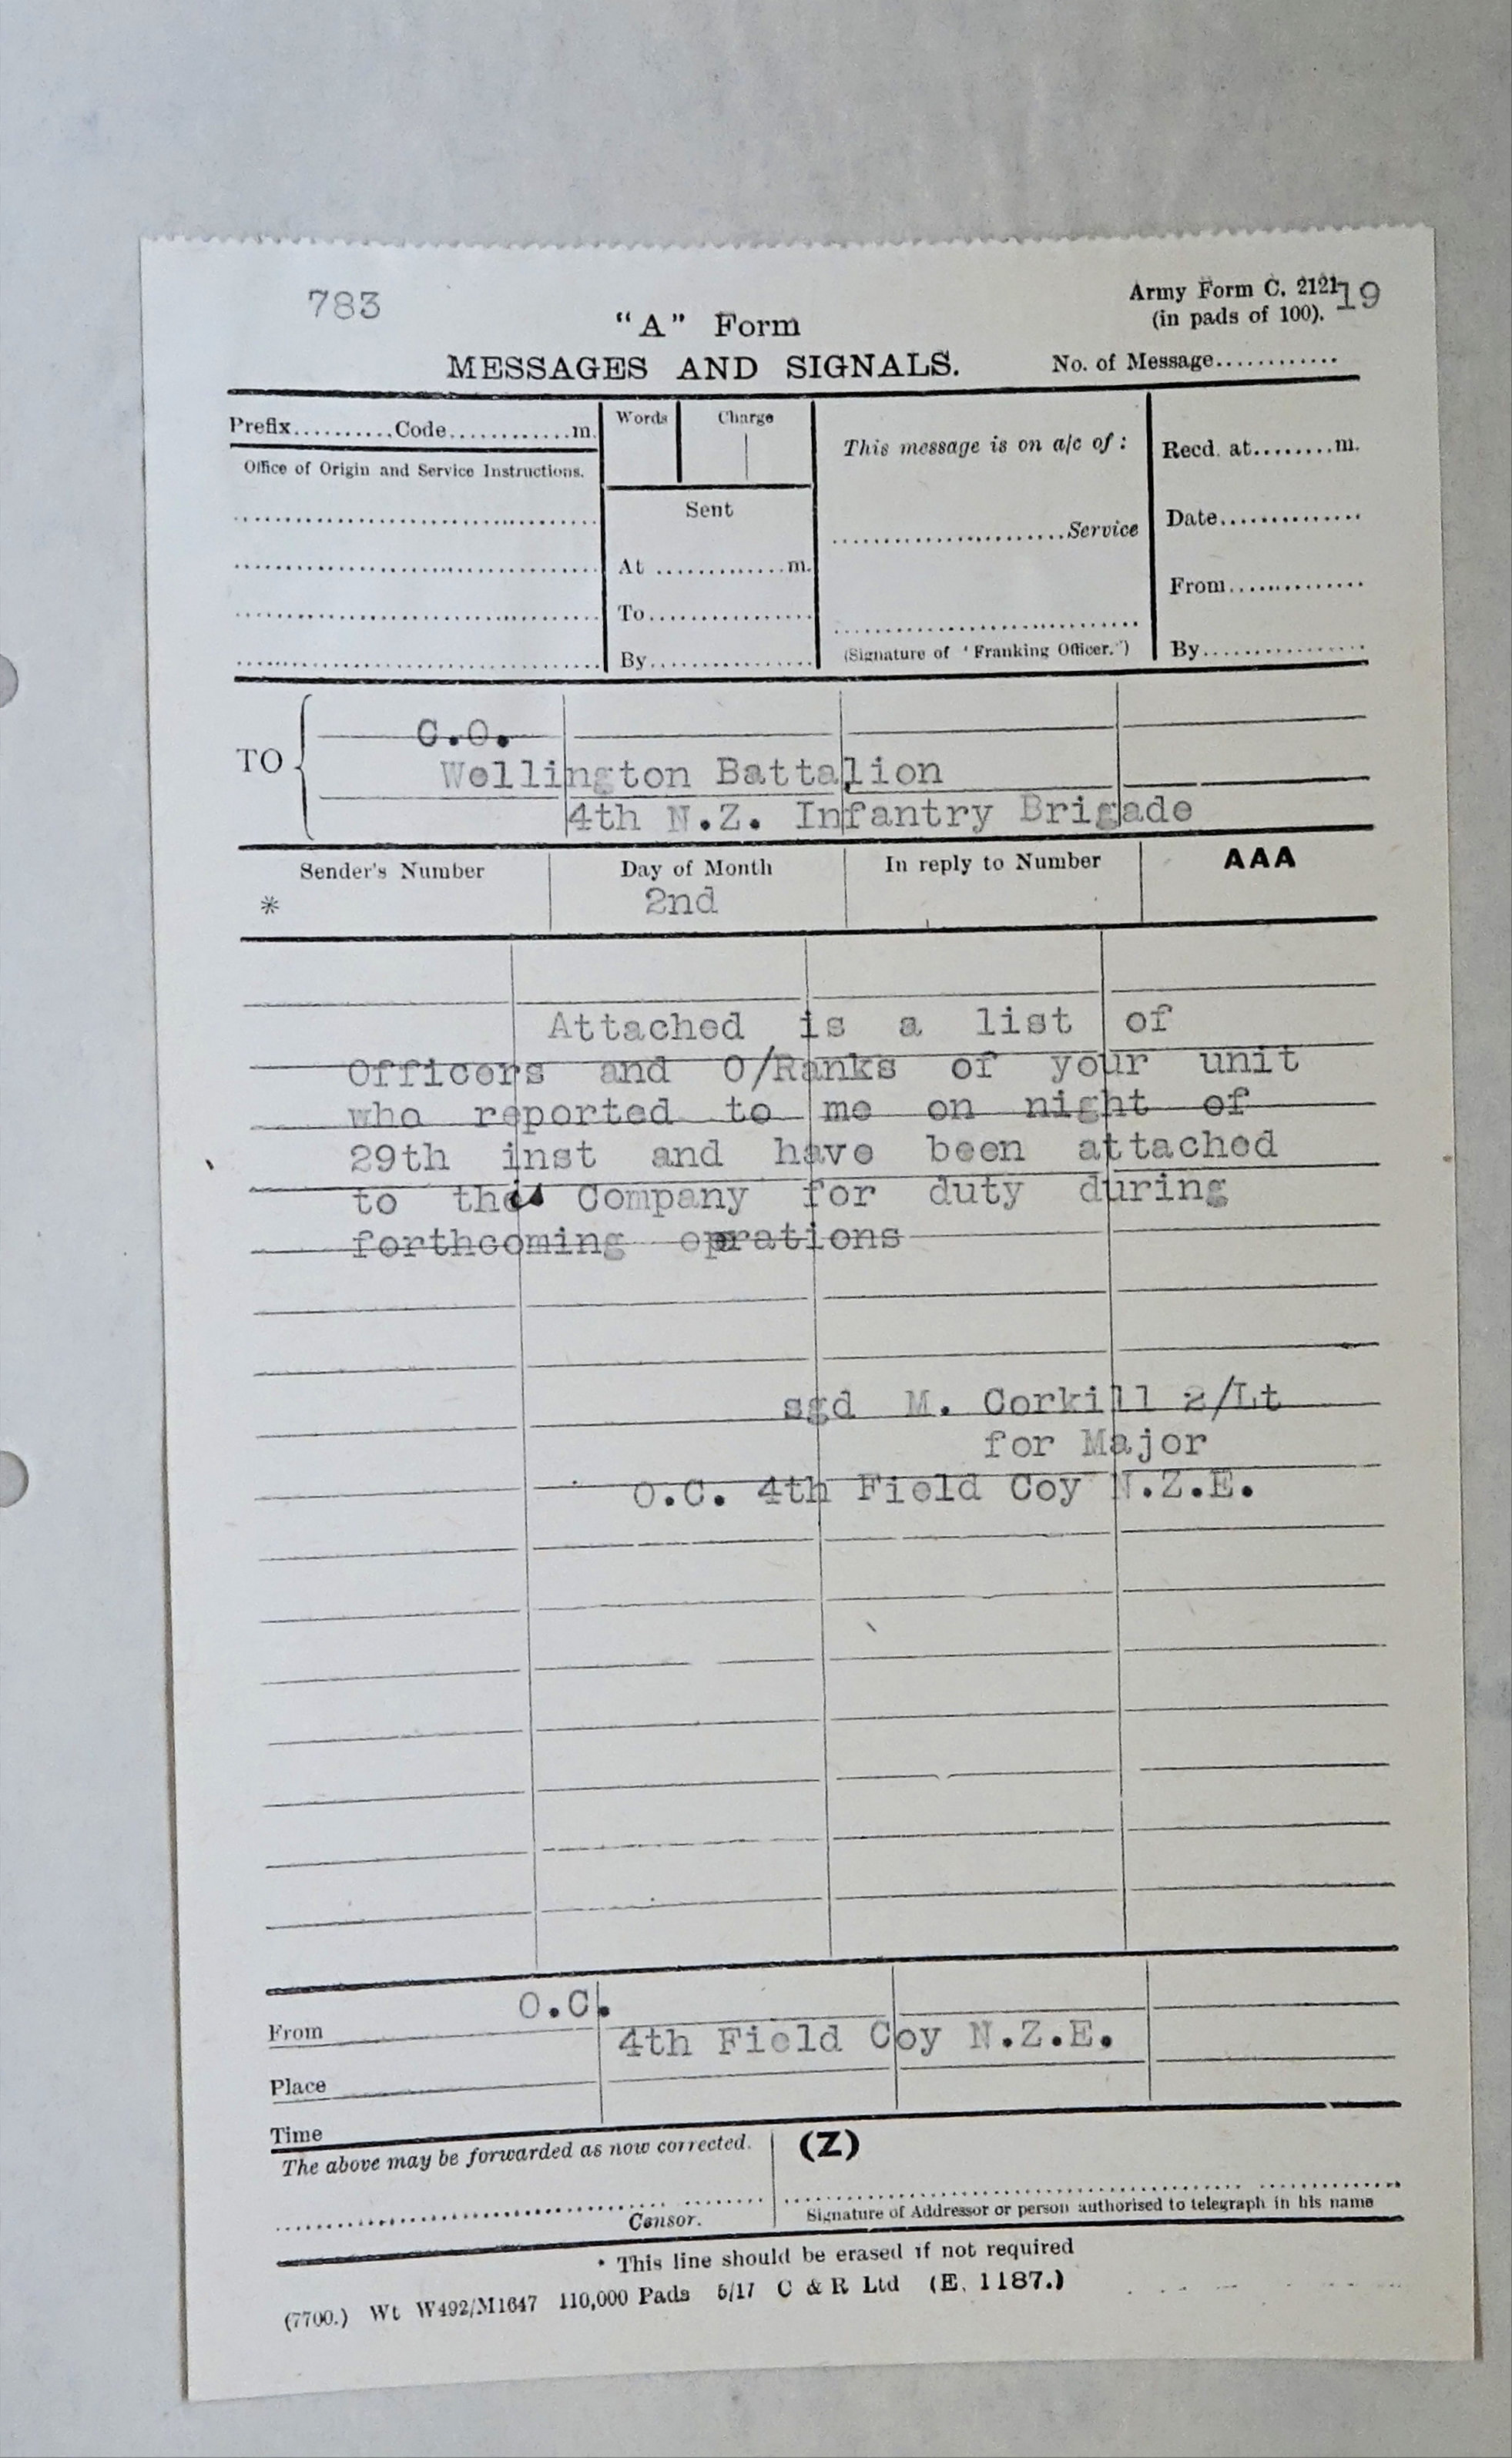 783
Army Form C. 2121
19
(in pads of 100).
"A" Form
MESSAGES AND SIGNALS.
No. of Message............
Prefix..........Code............m.
Words
Charge
This message is on a/c of :
Recd. at........m.
Office of Origin and Service Instructions.
Sent
Date..............
.......................Service
At .............m.
From..............
To................
(Signature of 'Franking Officer.')
By................
By................
TO
C.O.
Wellington Battalion
4th N.Z. Infantry Brigade
Sender's Number
Day of Month
In reply to Number
AAA
*
2nd
Attached is a list of
Officers and O/Ranks of your unit
who reported to me on night of
29th inst and have been attached
to the Company for duty during
forthcoming operations
sgd M. Corkill 2/Lt
for Major
O.C. 4th Field Coy N.Z.E.
O.C.
From
4th Field Coy N.Z.E.
Place
Time
The above may be forwarded as now corrected.
(Z)
Censor.
Signature of Addressor or person authorised to telegraph in his name
* This line should be erased if not required
(7700.) Wt W492/M1647 110,000 Pads 5/17 C & R Ltd (E. 1187.)